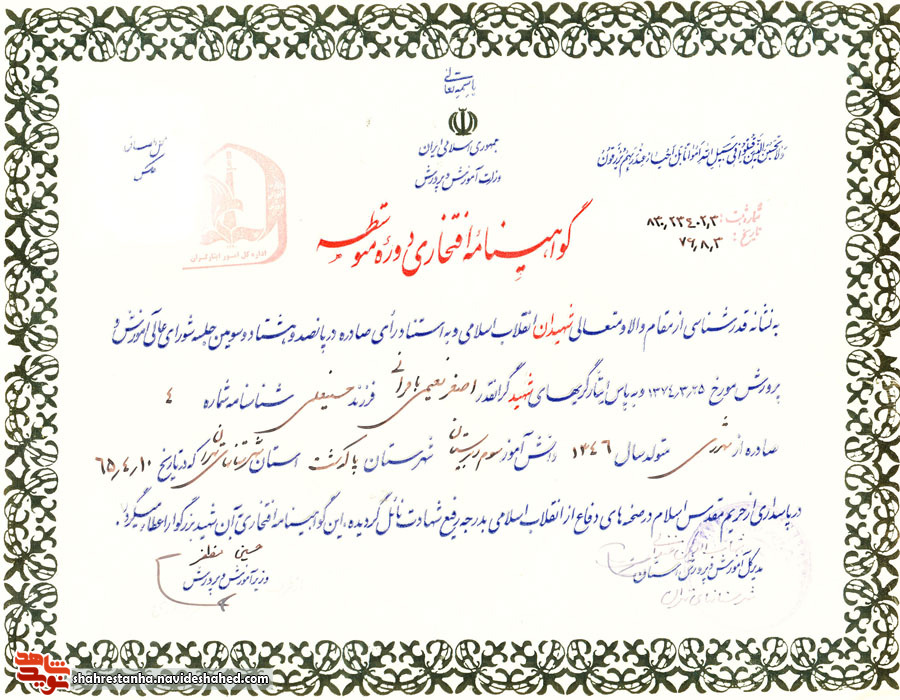 باسمه تعالی
جمهوری اسلامی ایران
وزارت آموزش و پرورش
ولا تحسبن الذین قتلوا فی سبیل الله امواتا بل احیاء عند ربهم یرزقون
محل الصاق
عکس
اداره کل امور ایثارگران
شماره ثبت:
تاریخ: ۷۹٫۸٫۳
گواهینامهٔ افتخاری دورهٔ متوسطه
به نشانه قدرشناسی از مقام والا و متعالی شهیدان انقلاب اسلامی و به استناد رأی صادره در پانصد و هشتاد و سومین جلسه شورای عالی آموزش و
پرورش مورخ ۱۳۷۴٫۳٫۲۵ و به پاس ایثارگریهای شهید گرانقدر اصغر نعیمی فرزند حسینعلی شناسنامه شماره ۴
صادره از متولد سال ۱۳۴۶ دانش آموز سوم دبیرستان شهرستان پاکدشت استان شهرستانهای تهران که در تاریخ ۶۵٫۴٫۱۰
در پاسداری از حریم مقدس اسلام در صحنه های دفاع از انقلاب اسلامی بدرجه رفیع شهادت نائل گردیده، این گواهینامه افتخاری به آن شهید بزرگوار اعطا میگردد.
مدیر کل آموزش و پرورش استان
شهرستانهای تهران
حسین مظفر
وزیر آموزش و پرورش
نوید شاهد
shahrestanha.navideshahed.com